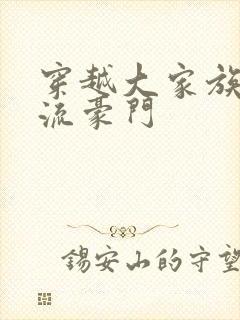 穿越大家族
流豪門
錫安山的守望